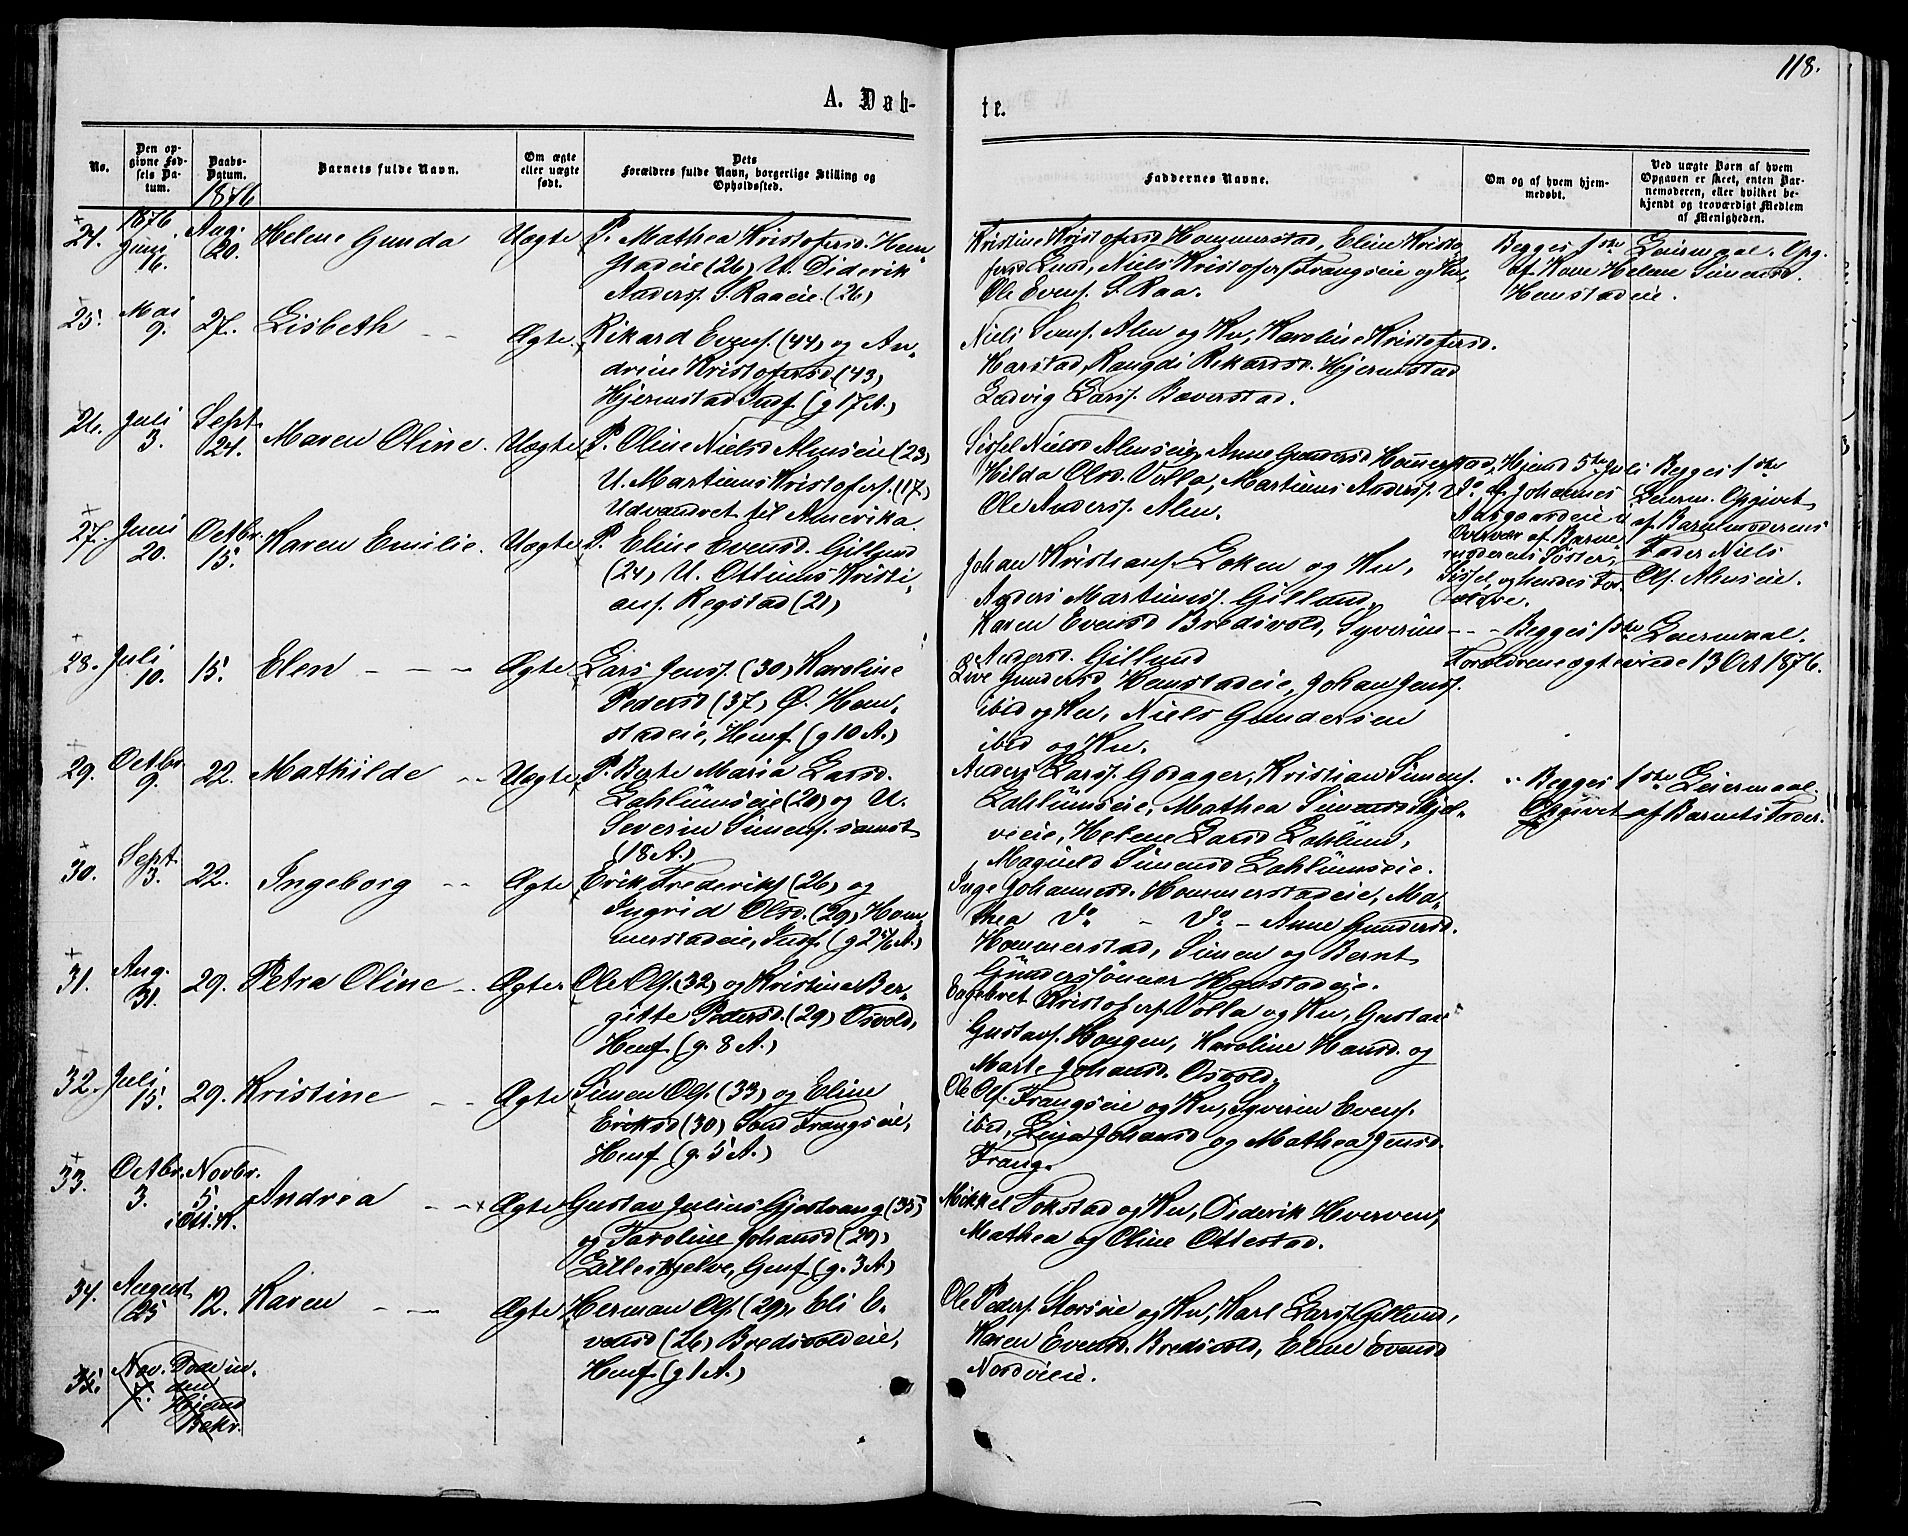 118.
A. Døb-
te.
No.
Den op-
givne Fød-
sels Da-
tum.
Daabs-
Datum.
1876
Barnets fulde Navn.
Om ægte
eller uægte
født.
Dets
Forældres fulde Navn, borgerlige Stilling og
Opholdssted.
Faddernes Navne.
Om og af hvem hjem-
medøbt.
Ved uægte Børn af hvem
Opgaven er skeet, enten Bar-
nemoderen, eller hvilket be-
kjendt og troværdigt Medlem
af Menigheden.
24.
1876.
Juni
16.
Aug.
20.
Helene Gunda
Uægte
P. Mathea Kristofersd. Hem-
stadeie (26) U. Diderik
Anders. S. Raaeie. (26)
Kristine Kristofersd Hommerstad, Eline Kristo-
fersd Lund, Niels Kristofers Frangseie og Ku,
Ole Evens. S. Raa.
Begges 1ste Leiermaal. Opg.
af Kone Helene Simensd.
Hemstadeie.
25.
Mai
9.
27.
Lisbeth
Ægte
Rikard Evens. (44) og An-
drine Kristofersd (43)
Hjermstad Indf (g 17 A.)
Niels Simens. Alm og Ku, Karoline Kristofersd.
Harstad, Rangdi Rikardsd. Hjermstad
Ludvig Larss. Bæverstad.
26.
Juli
3.
Sept.
24.
Maren Oline.
Uægte
P. Oline Nielsd Almseie (23)
U. Martinus Kristofers. (17)
Udvandret til Amerika.
Sissel Nielsd Almseie, Anne Gundersd Hommerstad,
Hilda Olsd. Volla, Martinus Anderss.
Ole Anderss. Alm.
Hjemd 5te Juli
af Johannes
Aasgaardeie i
Overvær af Barne
moderens Søster
Sissel, og hendes For-
ældre.
Begges 1ste
Leierm. Opgivet
af Barnemoderens
Fader Niels
Ols. Almseie.
27.
Juni
20.
Octbr.
15.
Karen Emilie.
Uægte
P. Eline Evensd. Gillund
(24) U. Ottinus Kristi-
ans. Regstad (21)
Johan Kristians. Løken og Ku,
Anders Martinuss. Gillund,
Karen Evensd Bredsvold, Syverine
Andersd. Gillund
Begges 1ste Leiermaal.
Forældrene ægteviede 13 Oct 1876.
28.
Juli
10.
15.
Elen
Ægte
Lars Jenss. (30) Karoline
Pedersd (37) Ø. Hem-
stadeie, Hemf (g 10 A.)
Live Gundersd Hemstadeie, Johan Jenss.
ibid og Ku, Niels Gundersen
ibid og Ku.
29.
Octbr
9.
22.
Mathilde
Uægte
P. Berte Maria Larsd.
Lahlumseie (20) og U.
Severin Simens. samst
(18 A.)
Anders Larss. Godager, Kristian Simens.
Lahlumseie, Mathea Simensd Skjel-
veieie, Helene Larsd Lahlum,
Magnild Simensd Lahlumseie.
Begges 1ste Leiermaal.
Opgivet af Barnets Fader.
30.
Sept.
3.
22.
Ingeborg
Ægte
Erik Frederiks (26) og
Ingrid Olsd. (29) Hom-
merstadeie, Indf (g 2 A.)
Inge Johannesd. Hommerstadeie, Ma-
thea Do - Do - Anne Gundersd.
Hommerstad, Simen og Bernt
Gunderssønner Hemstadeie.
31.
Aug.
31.
29.
Petra Oline
Ægte
Ole Ols. (32) og Kristine Ber-
gitte Pedersd. (29) Osvold,
Hemf (g. 8 A.)
Engebret Kristofers. Volla og Ku, Gustav
Gustavs. Hougen, Karoline Hansd. og
Marte Johansd. Osvold.
32.
Juli
15.
29.
Kristine
Ægte
Simen Ols. (33) og Eline
Eriksd (30) Frangseie,
Hemf (g. 5 A.)
Ole Ols. Frangseie og Ku, Syverin Evens.
ibid, Lina Johansd og Mathea Jensd.
Frang.
33.
Octbr.
3.
Novbr.
5.
Andrea
Ægte
Gustav Julius Gjestvang (35)
og Karoline Johansd (29)
Lilleskjelve, Hemf (g. 3 A)
Mikkel Fokstad og Ku, Diderik Hverven,
Mathea og Oline Ottestad.
34.
August
25
12.
Karen
Ægte
Herman Ols. (29), Eli E-
vensd (26) Bredsvoldeie,
Hemf (g 1 A.)
Ole Peders. Storseie og Ku, Karl Larss. Gillund,
Karen Evensd. Bredsvold, Eline Evensd
Nordvieie.
35.
Nov.
Døde in-
den
Hjemd
Bekr.